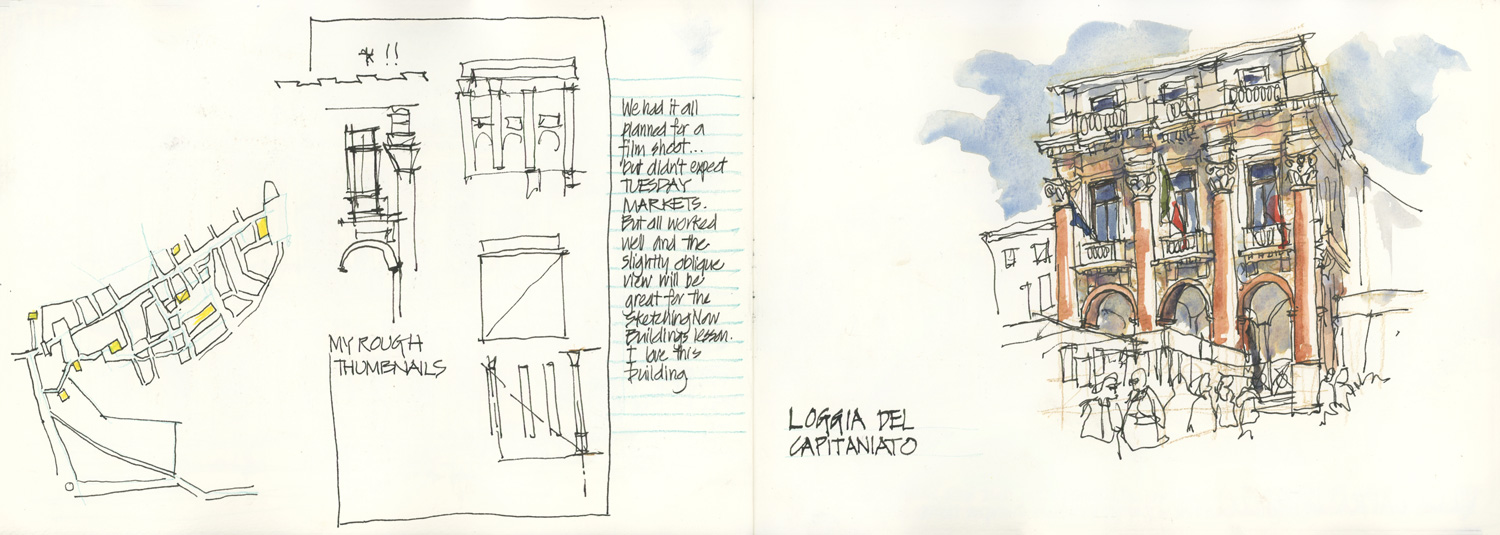 * !!
MY ROUGH
THUMBNAILS
We had it all
planned for a
film shoot...
but didn't expect
TUESDAY
MARKETS.
But all worked
well and the
slightly oblique
view will be
great for the
Sketching Now
Buildings lesson.
I love this
building
LOGGIA DEL
CAPITANIATO